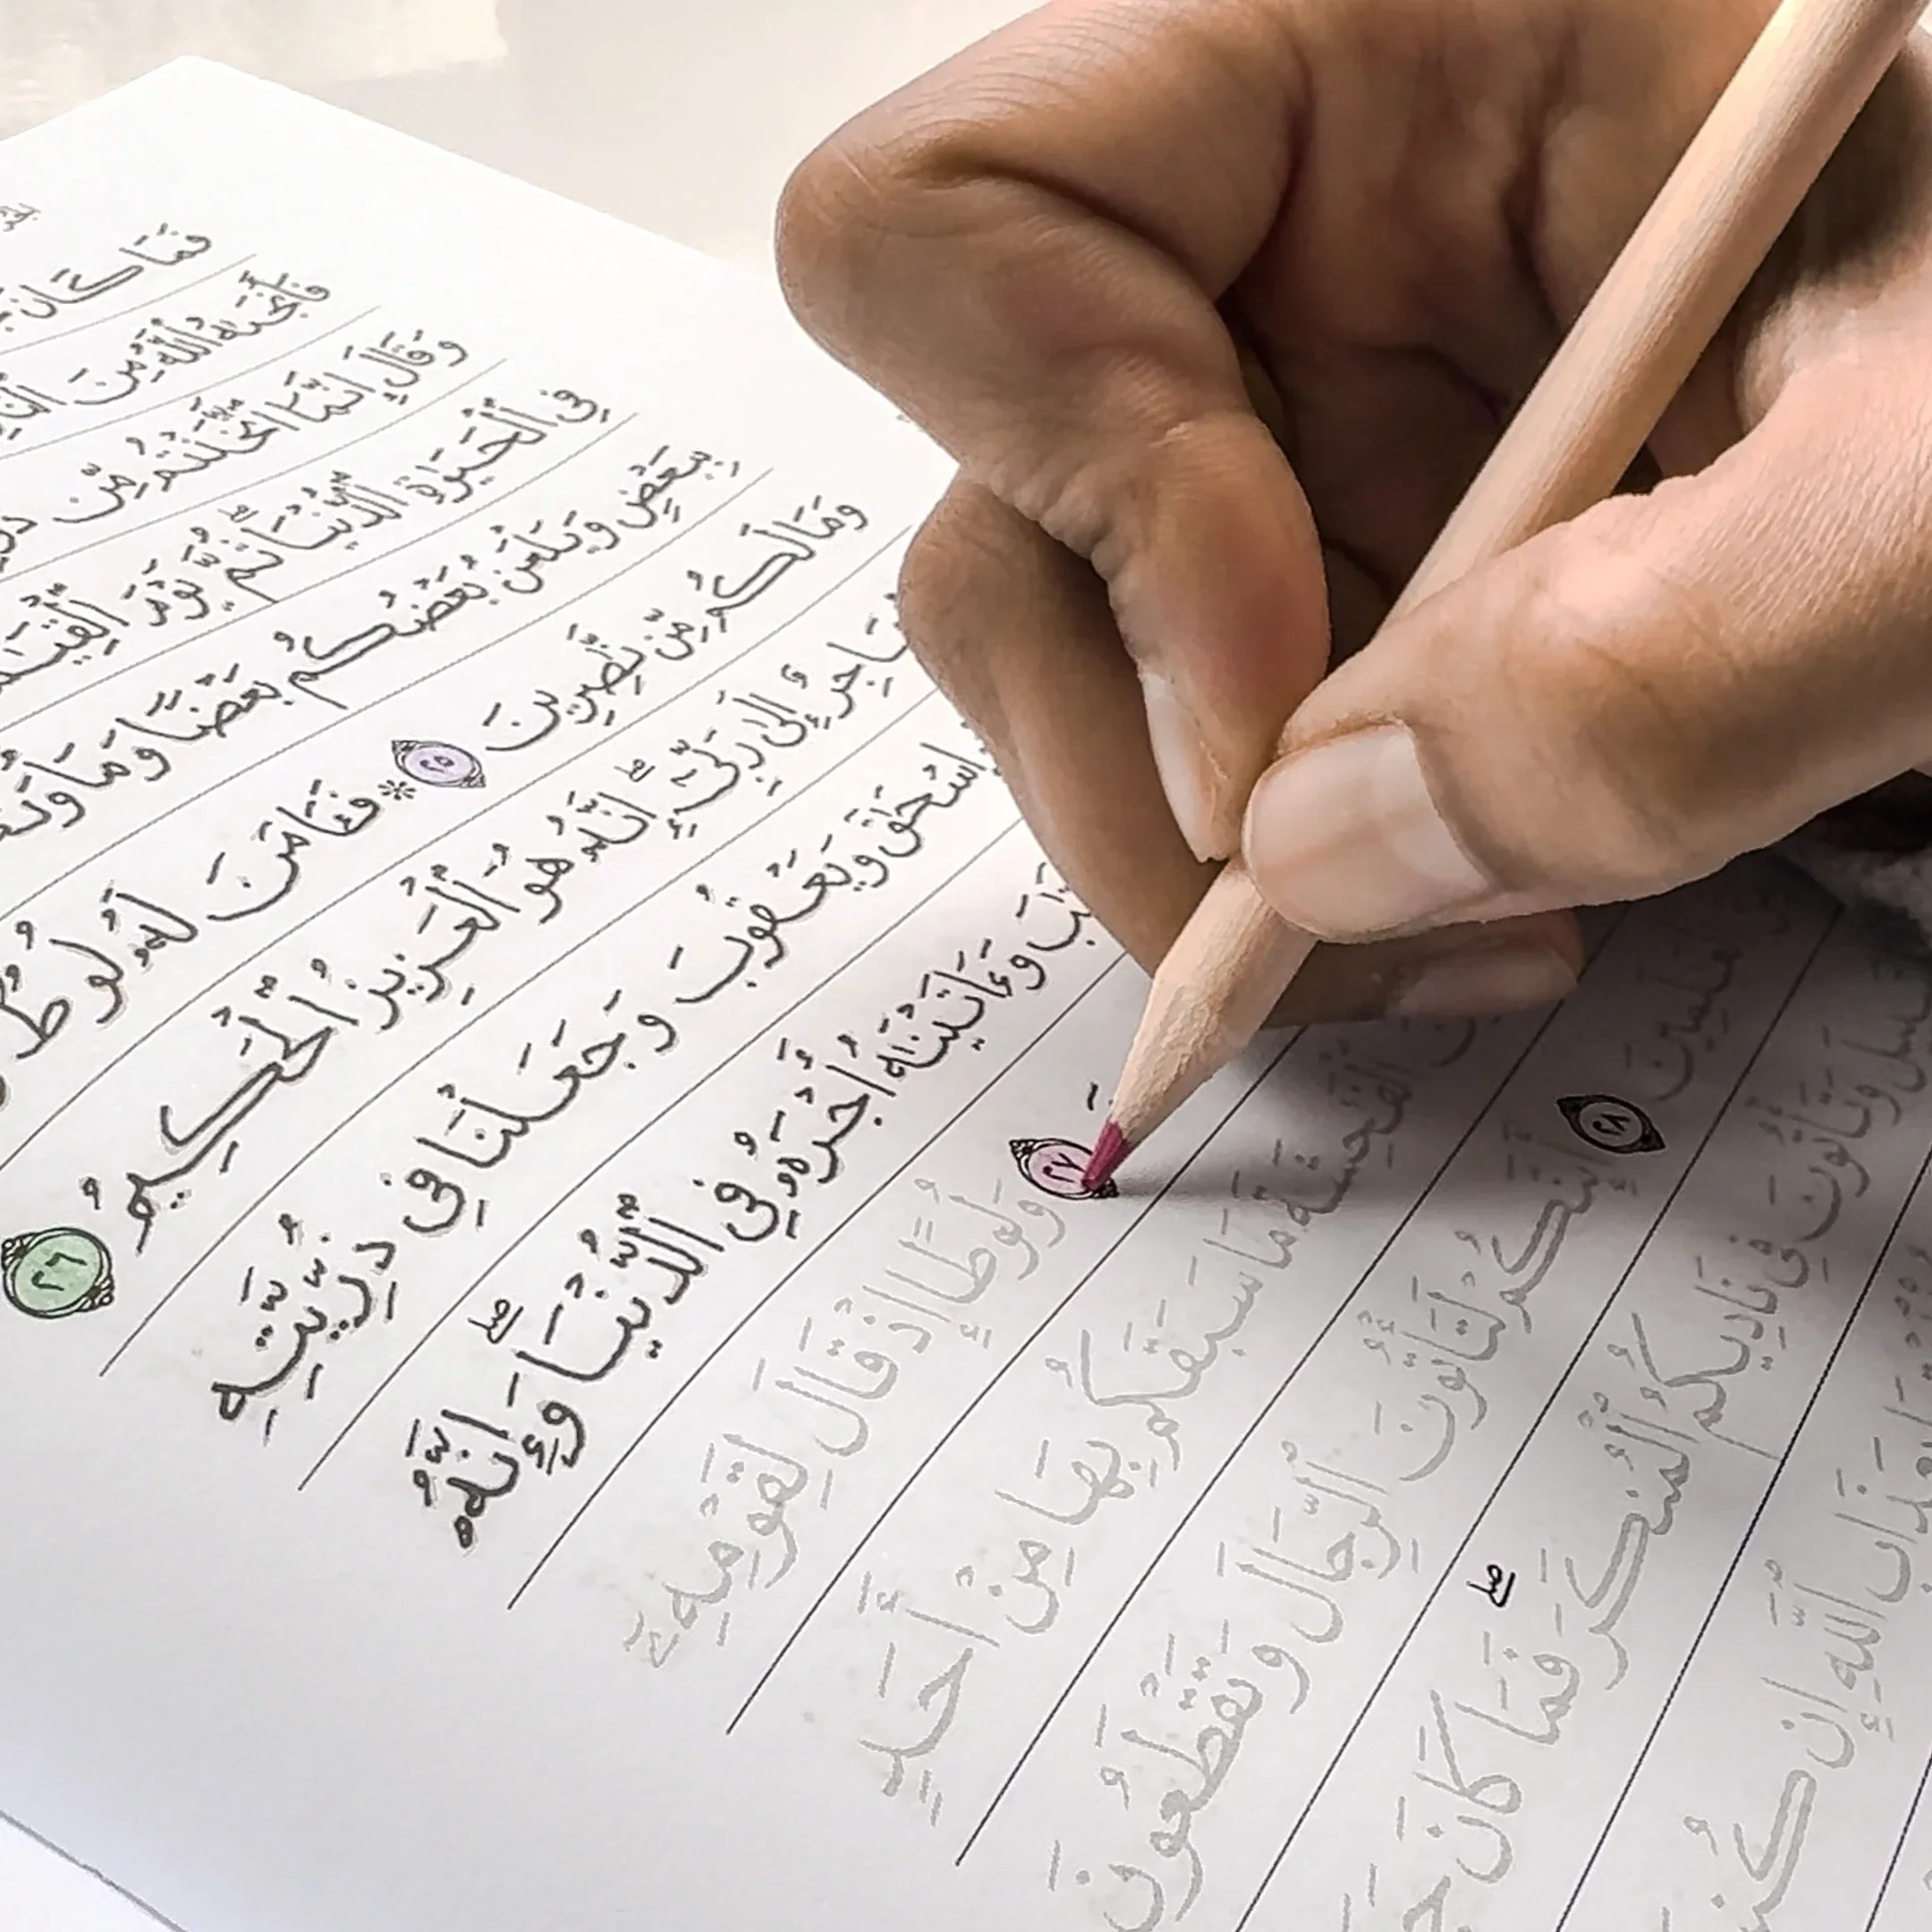 فَمَا كَانَ
فَأَنجَىٰهُ ٱللَّهُ مِنَ ٱلنَّارِ
وَقَالَ إِنَّمَا ٱتَّخَذْتُم مِّن
فِى ٱلْحَيَوٰةِ ٱلدُّنْيَا ثُمَّ يَوْمَ ٱلْقِيَـٰمَةِ
بِبَعْضٍ وَيَلْعَنُ بَعْضُكُم بَعْضًا وَمَأْوَىٰكُمُ
وَمَا لَكُم مِّن نَّـٰصِرِينَ ٢٥ * فَـَٔامَنَ لَهُۥ لُوطٌ
مُهَاجِرٌ إِلَىٰ رَبِّىٓ ۖ إِنَّهُۥ هُوَ ٱلْعَزِيزُ ٱلْحَكِيمُ ٢٦
إِسْحَـٰقَ وَيَعْقُوبَ وَجَعَلْنَا فِى ذُرِّيَّتِهِ
وَءَاتَيْنَـٰهُ أَجْرَهُۥ فِى ٱلدُّنْيَا ۖ وَإِنَّهُۥ
٢٧ وَلُوطًا إِذْ قَالَ لِقَوْمِهِۦٓ
ٱلْفَـٰحِشَةَ مَا سَبَقَكُم بِهَا مِنْ أَحَدٍ
ٱلْعَـٰلَمِينَ ٢٨ أَئِنَّكُمْ لَتَأْتُونَ ٱلرِّجَالَ وَتَقْطَعُونَ
وَتَأْتُونَ فِى نَادِيكُمُ ٱلْمُنكَرَ ۖ فَمَا كَانَ
بِعَذَابِ ٱللَّهِ إِن